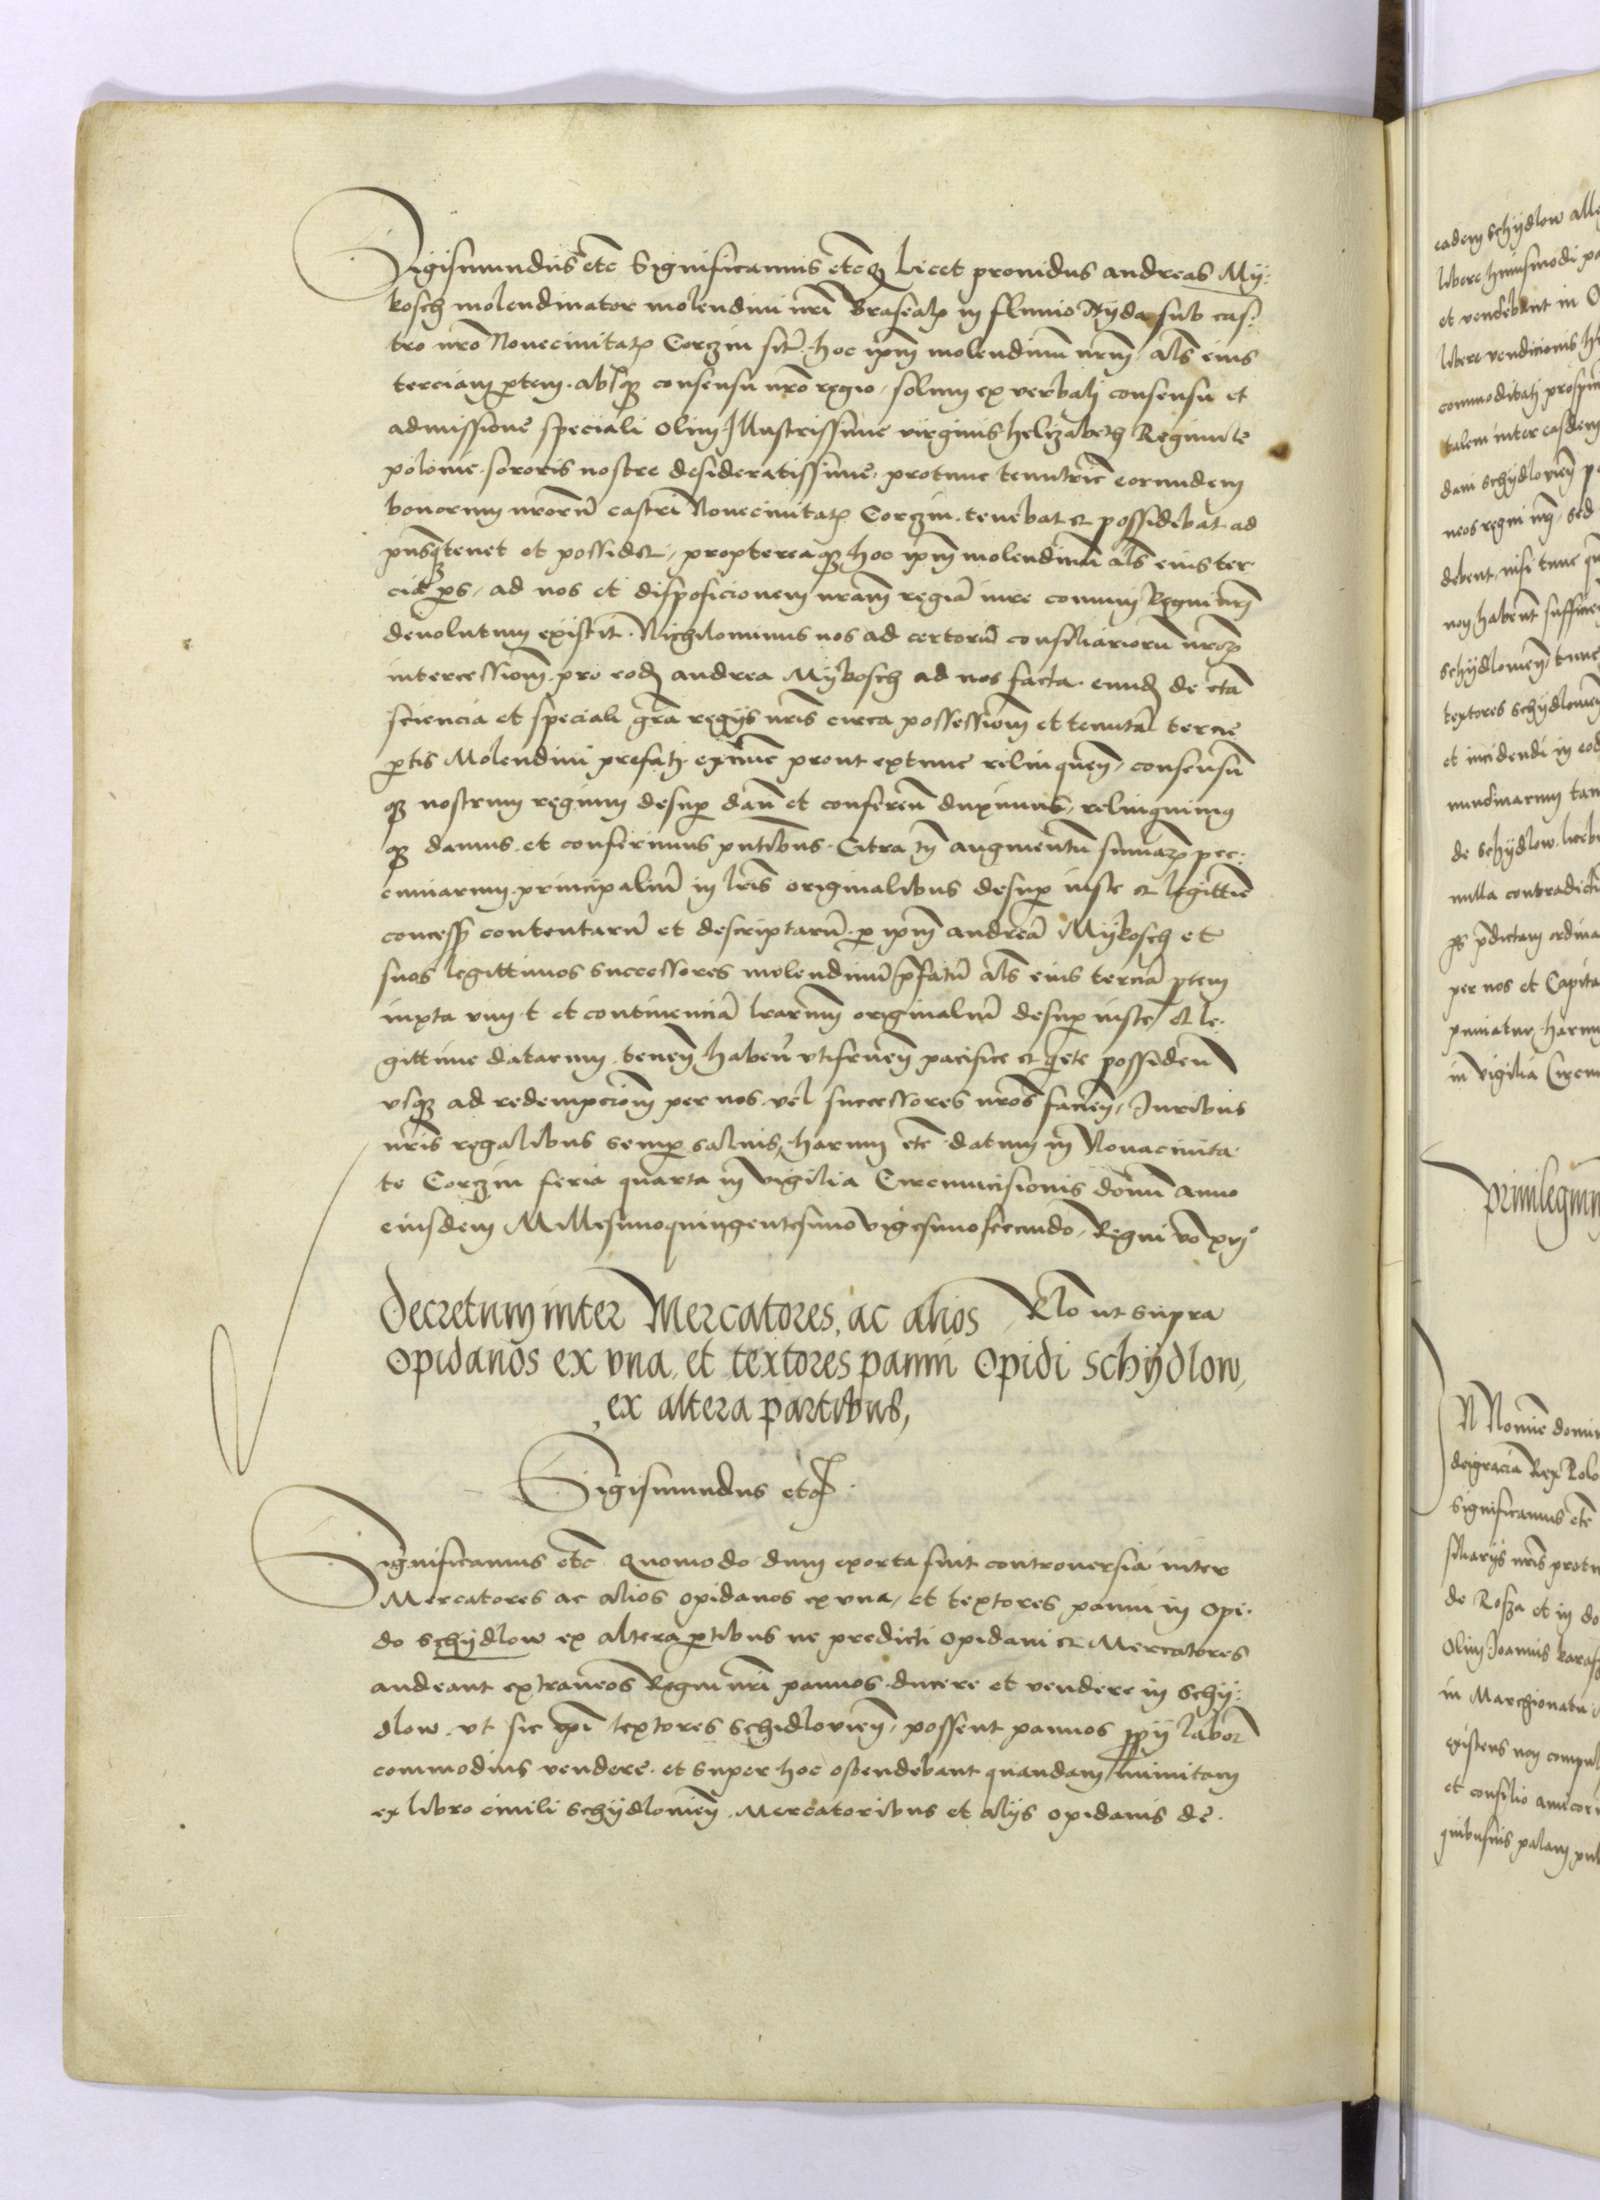 Sigismundus etc Significamus etc Licet providus andreas My-
kosch molendinator molendini nri Braseator in fluvio Nyda sub cas-
tro nro Novecivitatis Corczin sit hoc ipm molendinum nrm als eius
terciam ptem absque consensu nro regio, solum ex verbali consensu et
admissione speciali olim Illustrissime virginis helizabeth Reginule
polonie sororis nostre desideratissime protunc tenutricis eorundem
bonorum nrorum castri Novecivitatis Corczin tenebat et possidebat ad
pnsque tenet et possidet, propterea quod hoc ipm molendinum als eius ter
cia ps, ad nos et disposicionem nram regia iure comuni Regni nri
devolutum existit Nichilominus nos ad certoru consiliarioru nror
intercessiom pro eod andrea Mykosch ad nos facta eund de cta
sciencia et speciali gra regijs nris circa possessiom et tenuta tercie
ptis Molendini prefati exnunc prout extunc relinquen, consensu
que nostrum regium desup dan et conferen duximus, relinquimus
que damus et conferimus pntibus Citra tn augmentu sumar pec-
cuniarum principaliu in lris originalibus desup iuste et legittie
concess contentaru et descriptaru p ipm andrea Mykosch et
suos legittimos successores molendinu pfatu als eius tercia ptem
iuxta vim t et continencia lrarum originaliu desup iuste et le-
gittime datarum tenen haben utifruen pacifice et qete possiden
usque ad redempciom per nos vel successores nros facien, Iuribus
nris regalibus semp salvis, harum etc datum in Novacivita
te Corczin feria quarta in vigilia Circumcisionis domi anno
eiusdem Millesimoquingentesimo vigesimosecundo, Regni vo xvj
Decretum inter Mercatores, ac alios Rlo ut supra
Opidanos ex una, et textores panni Opidi Schydlow,
ex altera partibus,
Sigismundus etc
Significamus etc Quomodo dum exorta fuit controversia inter
Mercatores ac alios opidanos ex una, et textores panni in Opi-
do Schydlow ex altera ptibus ne predicti opidani et Mercatores
audeant extraneos Regni nri pannos ducere et vendere in Schy-
dlow ut sic ipi textores Schidlovien, possent pannos ppij labor
commodius vendere et super hoc ostendebant quandam munitam
ex libro civili Schydlovien Mercatoribus et alijs opidanis de
eadem Schydlow
libere huiusmodi
et vendebant in
libere vendicionis
commoditati
talem inter easdem
dani schydlovien
neos regni nri, sed
debent, nisi tunc
non habent
schydlovien, tunc
textores schydlovien
et incidendi in
nundinarum
de schydlow
nulla
pdictam
per nos et
puniatur, harum
in vigilia
Privilegium
In Nomie
deigracia Rex
Significamus etc
siliarijs nris
de et in
Olim Joannis
in Marchionatu
existens non
et consilio
quibusvis palam